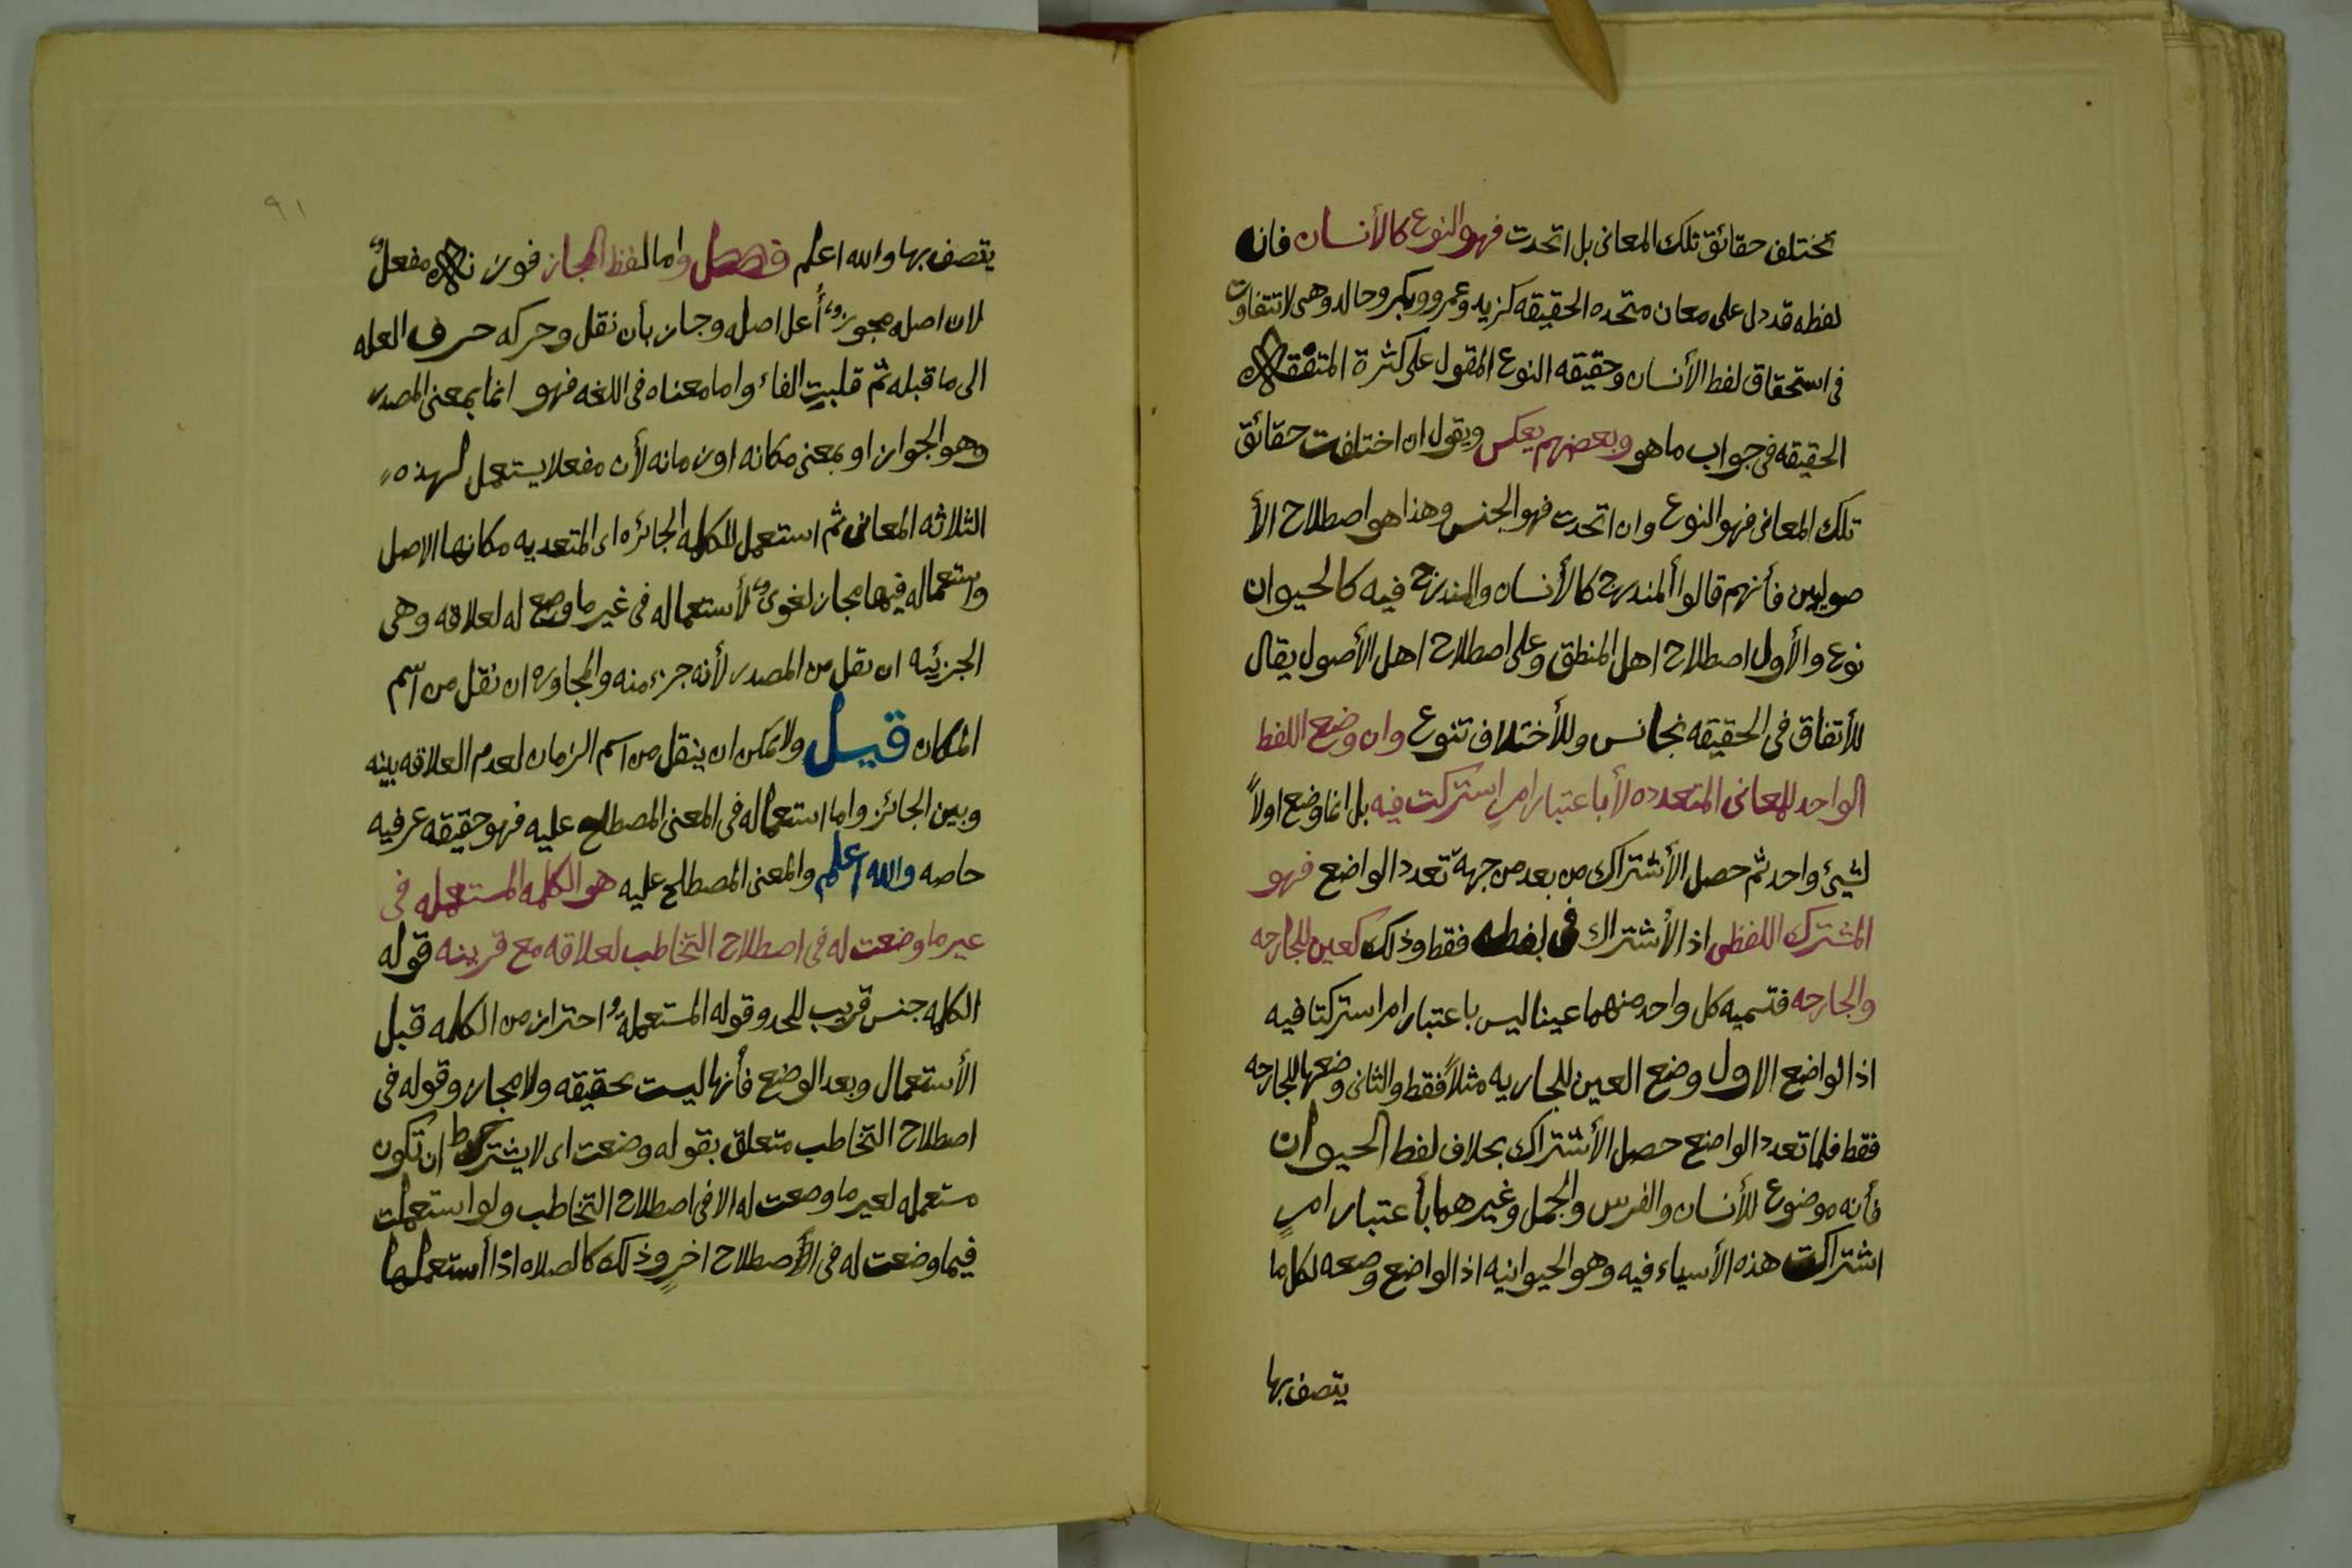 تختلف حقائق تلك المعانى بل اتحدت فهو النوع كالأنسان فان
لفظه قد دل على معان متحده الحقيقه كزيد وعمرو وبكر وخالد وهى لا تتفاوت
فى استحقاق لفط الأنسان وحقيقه النوع المقول على كثرة المتفقه
الحقيقه فى جواب ما هو وبعضهم يعكس ويقول ان اختلفت حقائق
تلك المعانى فهو النوع وان اتحدت فهو الجنس وهذا هو اصطلاح الأ
صوليين فأنهم قالوا ألمندرج كالأنسان والمندرج فيه كالحيوان
نوع والأول اصطلاح اهل المنطق وعلى اصطلاح اهل الأصول يقال
للأتفاق فى الحقيقه تجانس وللأختلاف تنوع وان وضع اللفظ
الواحد للمعانى المتعدده لأ باعتبار امرٍ استركت فيه بل انما وضع اولاً
لشيئ واحد ثم حصل الأشتراك من بعد من جهة تعدد الواضع فهو
المشترك اللفظى اذ الأشتراك فى لفطه فقط وذلك كعين للجارحه
والجارحه فتسميه كل واحد منهما عينا ليس باعتبار امر استركتا فيه
اذ الواضع الاول وضع العين للجاريه مثلاً فقط والثانى وضعها للجارحه
فقط فلما تعدد الواضع حصل الأشتراك بحلاف لفط الحيوان
فأنه موضوع للأنسان والفرس والجمل وغيرهما بأعتبار امرٍ
اشتركت هذه الأسياء فيه وهو الحيوانيه اذ الواضع وصعه لكل ما
يتصف بها
٩١
يتصف بها والله اعلم فصل واما لفظ المجاز فوزنه مفعلٌ
لان اصله مجوزٌ أُعل اصله وجاز بأن نقل وحركه حرف العله
الى ما قبله ثم قلبت الفاء واما معناه فى اللغه فهو انما بمعنى المصدر
وهو الجواز او بمعنى مكانه او زمانه لأن مفعلا يستعمل لهذه
الثلاثه المعانى ثم استعمل للكلمه الجائزه اى المتعديه مكانها الاصل
واستعماله فيها مجاز لغوىٌ لأستعماله فى غير ما وضع له لعلاقه وهى
الجزئيه ان نقل من المصدر لأنه جزء منه والمجاوره ان نقل من اسم
المكان قيل ولا يمكن ان ينقل من اسم الزمان لعدم العلاقه بينه
وبين الجائز واما استعماله فى المعنى المصطلح عليه فهو حقيقه عرفيه
حاصه والله اعلم والمعنى المصطلح عليه هو الكلمه المستعمله فى
عير ما وضعت له فى اصطلاح التخاطب لعلاقه مع قرينه قوله
الكلمه جنس قريب للحد وقوله المستعملهُ احتراز من الكلمه قبل
الأستعمال وبعد الوضع فأنها ليست بحقيقه ولا مجاز وقوله فى
اصطلاح التخاطب متعلق بقوله وضعت اى لا يشترط ان تكون
مستعمله لعير ما وصعت له الا فى اصطلاح التخاطب ولو استعملت
فيما وضعت له فى الأصطلاح اخرٍ وذلك كالصلاه اذا أستعملها